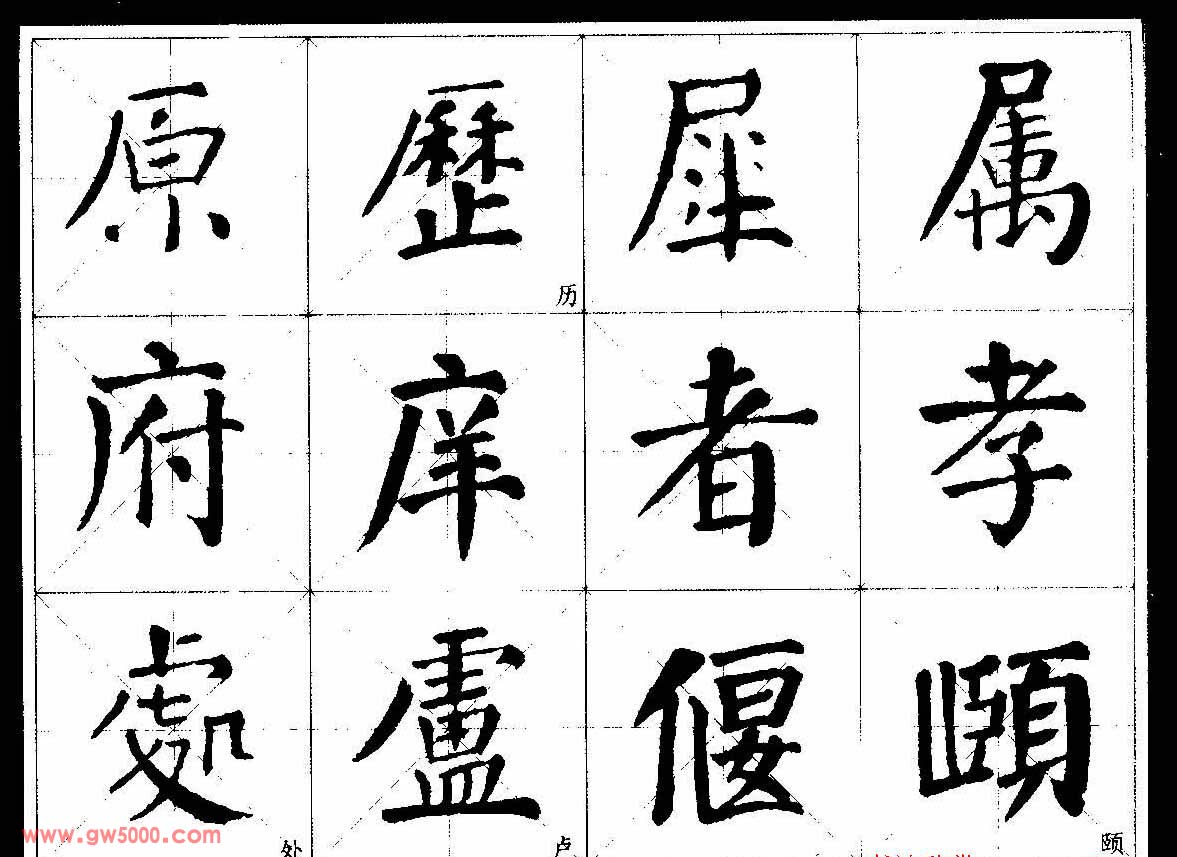 原歷犀属
历
府庠者孝
處盧偃頤
www.gw5000.com
处 卢 颐